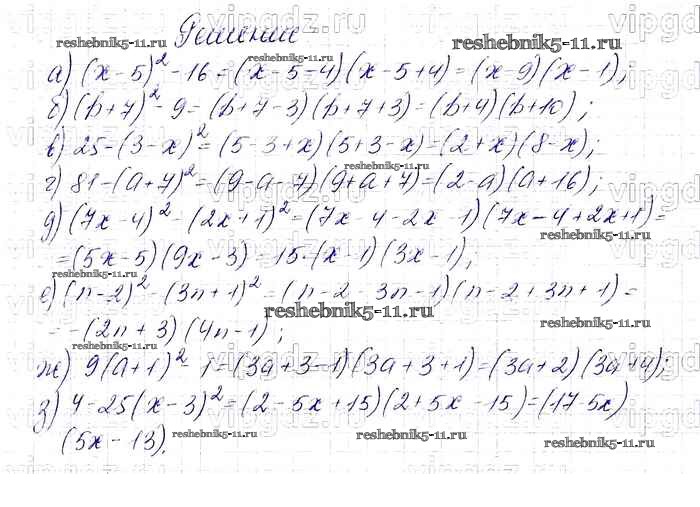 Решение
а) (x - 5)² - 16 = (x - 5 - 4)(x - 5 + 4) = (x - 9)(x - 1);
б) (b + 7)² - 9 = (b + 7 - 3)(b + 7 + 3) = (b + 4)(b + 10);
в) 25 - (3 - x)² = (5 - 3 + x)(5 + 3 - x) = (2 + x)(8 - x);
г) 81 - (a + 7)² = (9 - a - 7)(9 + a + 7) = (2 - a)(a + 16);
д) (7x - 4)² - (2x + 1)² = (7x - 4 - 2x - 1)(7x - 4 + 2x + 1) =
= (5x - 5)(9x - 3) = 15 · (x - 1)(3x - 1);
е) (n - 2)² - (3n + 1)² = (n - 2 - 3n - 1)(n - 2 + 3n + 1) =
= -(2n + 3)(4n - 1);
ж) 9(a + 1)² - 1 = (3a + 3 - 1)(3a + 3 + 1) = (3a + 2)(3a + 4);
з) 4 - 25(x - 3)² = (2 - 5x + 15)(2 + 5x - 15) = (17 - 5x)
(5x - 13).
reshebnik5-11.ru
reshebnik5-11.ru
reshebnik5-11.ru
reshebnik5-11.ru
reshebnik5-11.ru
reshebnik5-11.ru
reshebnik5-11.ru
reshebnik5-11.ru
reshebnik5-11.ru
reshebnik5-11.ru
reshebnik5-11.ru
vipgdz.ru